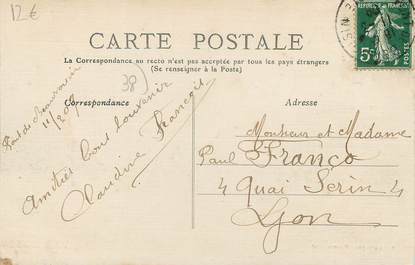 12€
CARTE POSTALE
La Correspondance au recto n'est pas acceptée par tous les pays étrangers
(Se renseigner à la Poste)
38
Correspondance
Adresse
Pont de Beauvoisin
11/8 09
Amitiés bons souvenir
Claudine François
Monsieur et Madame
Paul Franco
4 Quai Serin 4
Lyon
REPUBLIQUE FRANÇAISE
5c